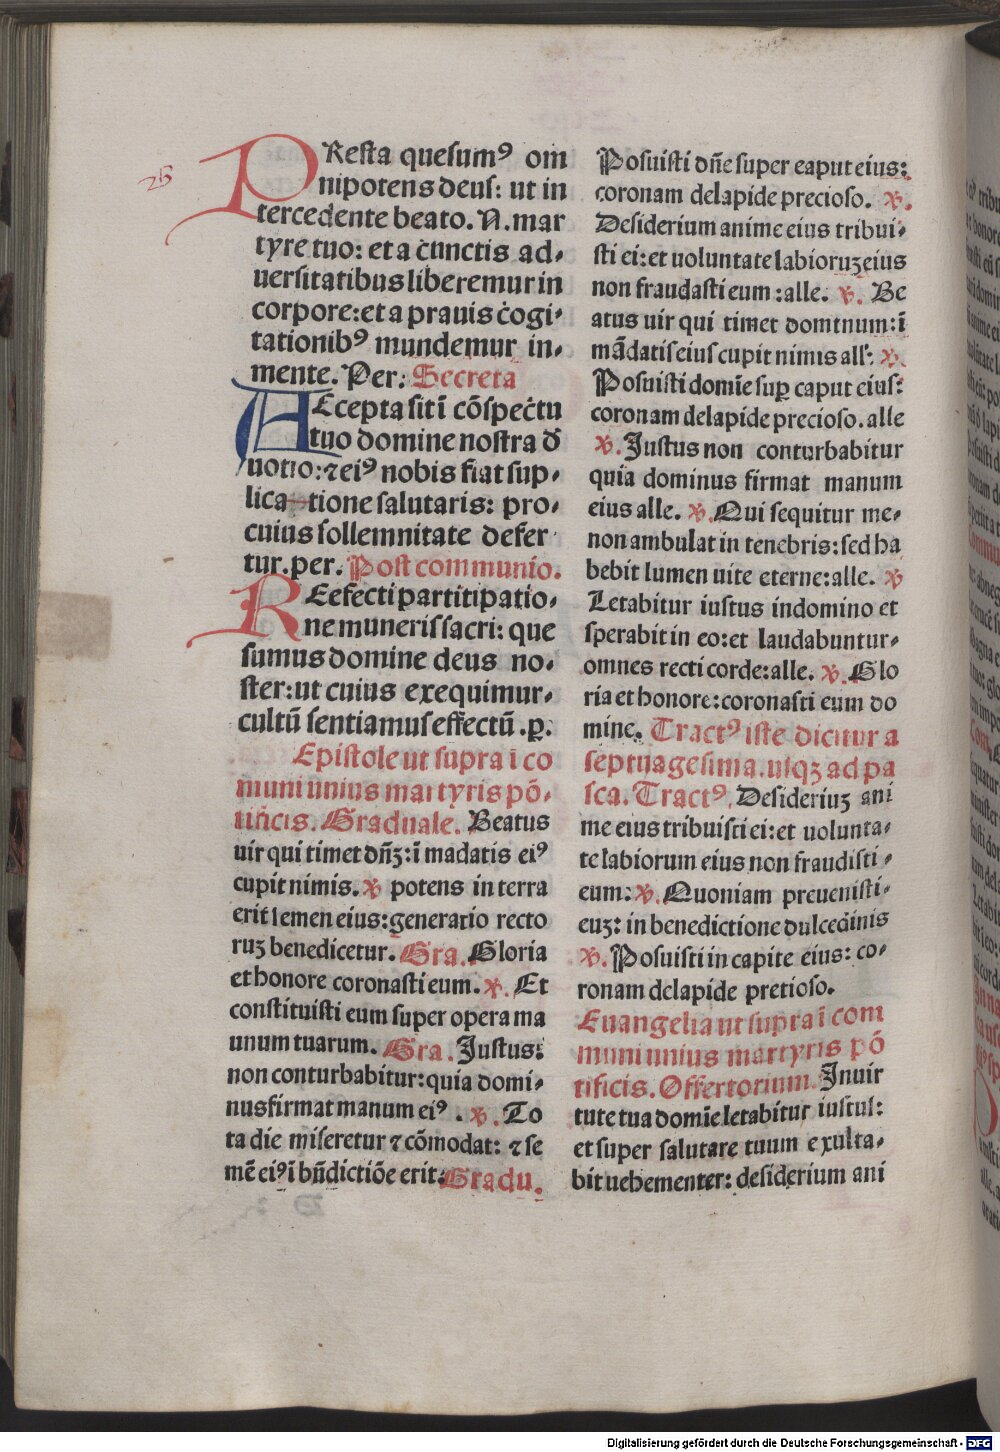 PResta quesumꝰ om
nipotens deus: ut in
tercedente beato. N. mar
tyre tuo: et a cunctis ad-
uersitatibus liberemur in
corpore: et a prauis cogi-
tationibꝰ mundemur in-
mente. Per: Secreta
AEcepta sit ī cōspectu
tuo domine nostra d̄
uotio: ⁊ eiꝰ nobis fiat sup-
lica-tione salutaris: pro-
cuius sollemnitate defer
tur. per. Post communio.
REefecti partitipatio-
ne muneris sacri: que
sumus domine deus no-
ster: ut cuius exequimur-
cultū sentiamus effectū. ꝑ.
Epistole ut supra ī co
muni unius martyris pō-
tificis. Graduale. Beatus
uir qui timet dn̄ꝫ: ī madatis eiꝰ
cupit nimis. ℣ potens in terra
erit semen eius: generatio recto
ruꝫ benedicetur. Gra. Gloria
et honore coronasti eum. ℣. Et
constituisti eum super opera ma
unum tuarum. Gra. Justus:
non conturbabitur: quia domi-
nus firmat manum eiꝰ. ℣. To
ta die miseretur ⁊ cōmodat: ⁊ se
mē eiꝰ ī bn̄dictiōe erit: Gradu.
Posuisti dn̄e super eaput eius:
coronam delapide precioso. ℣.
Desiderium anime eius tribui-
sti ei: et uoluntate labioruꝫ eius
non fraudasti eum: alle. ℣. Be
atus uir qui timet domtnum: ī
mādatis eius cupit nimis all': ℣.
Posuisti domīe suꝑ caput eius:
coronam delapide precioso. alle
℣. Justus non conturbabitur
quia dominus firmat manum
eius alle. ℣. Qui sequitur me-
non ambulat in tenebris: sed ha
bebit lumen uite eterne: alle. ℣
Letabitur iustus indomino et
sperabit in eo: et laudabuntur-
omnes recti corde: alle. ℣. Glo
ria et honore: coronasti eum do
mine. Tractꝰ iste dicitur a
septuagesima. usqꝫ ad pa
sca. Tractꝰ. Desideriuꝫ ani
me eius tribuisti ei: et uolunta-
te labiorum eius non fraudisti-
eum: ℣. Quoniam preuenisti-
euꝫ: in benedictione dulcedinis
℣. Posuisti in capite eius: co-
ronam delapide pretioso.
Euangelia ut supra ī com
muni unius martyris pō
tificis. Offertorium. Inuir
tute tua domīe letabitur iustus:
et super salutare tuum exulta-
bit uehementer: desiderium ani
Digitalisierung gefördert durch die Deutsche Forschungsgemeinschaft - DFG